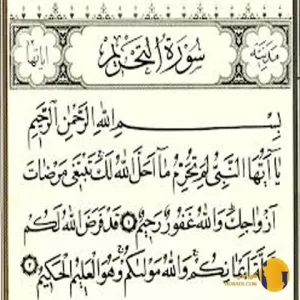 مدنية سورة التحريم آياتها
بسم الله الرحمن الرحيم
يا أيها النبي لم تحرم ما أحل الله لك تبتغي مرضات
أزواجك والله غفور رحيم ١ قد فرض الله لكم
تحلة أيمانكم والله مولاكم وهو العليم الحكيم ٢